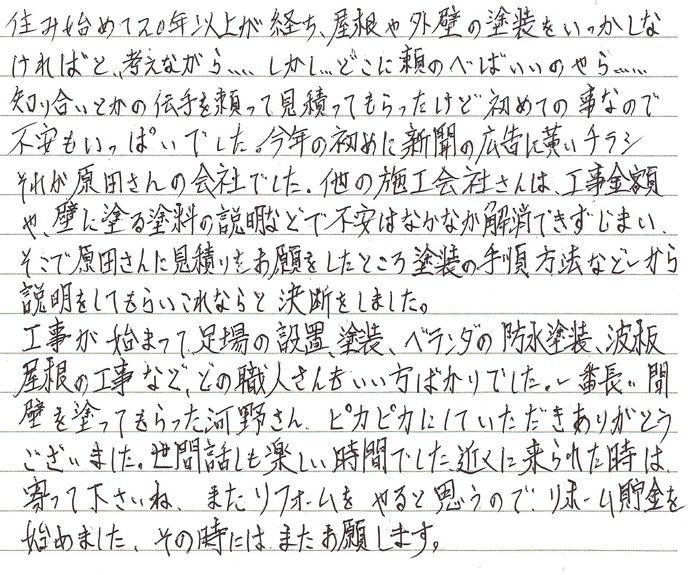 住み始めて20年以上が経ち、屋根や外壁の塗装をいつかしな
ければと、考えながら.... しかし...どこに頼のべばいいのやら......
知り合いとかの伝手を頼って見積ってもらったけど初めての事なので
不安もいっぱいでした。今年の初めに新聞の広告に黄いチラシ
それが原田さんの会社でした。他の施工会社さんは、工事金額
や、壁に塗る塗料の説明などで不安はなかなか解消できずじまい、
そこで原田さんに見積りをお願をしたところ塗装の手順方法など一から
説明をしてもらいこれならと決断をしました。
工事が始まって、足場の設置、塗装、ベランダの防水塗装、波板
屋根の工事など、どの職人さんもいい方ばかりでした。一番長い間
壁を塗ってもらった河野さん、ピカピカにしていただきありがとう
ございました。世間話しも楽しい時間でした、近くに来られた時は、
寄って下さいね、またリフォームをやると思うので、リホーム貯金を
始めました、その時には、またお願します。